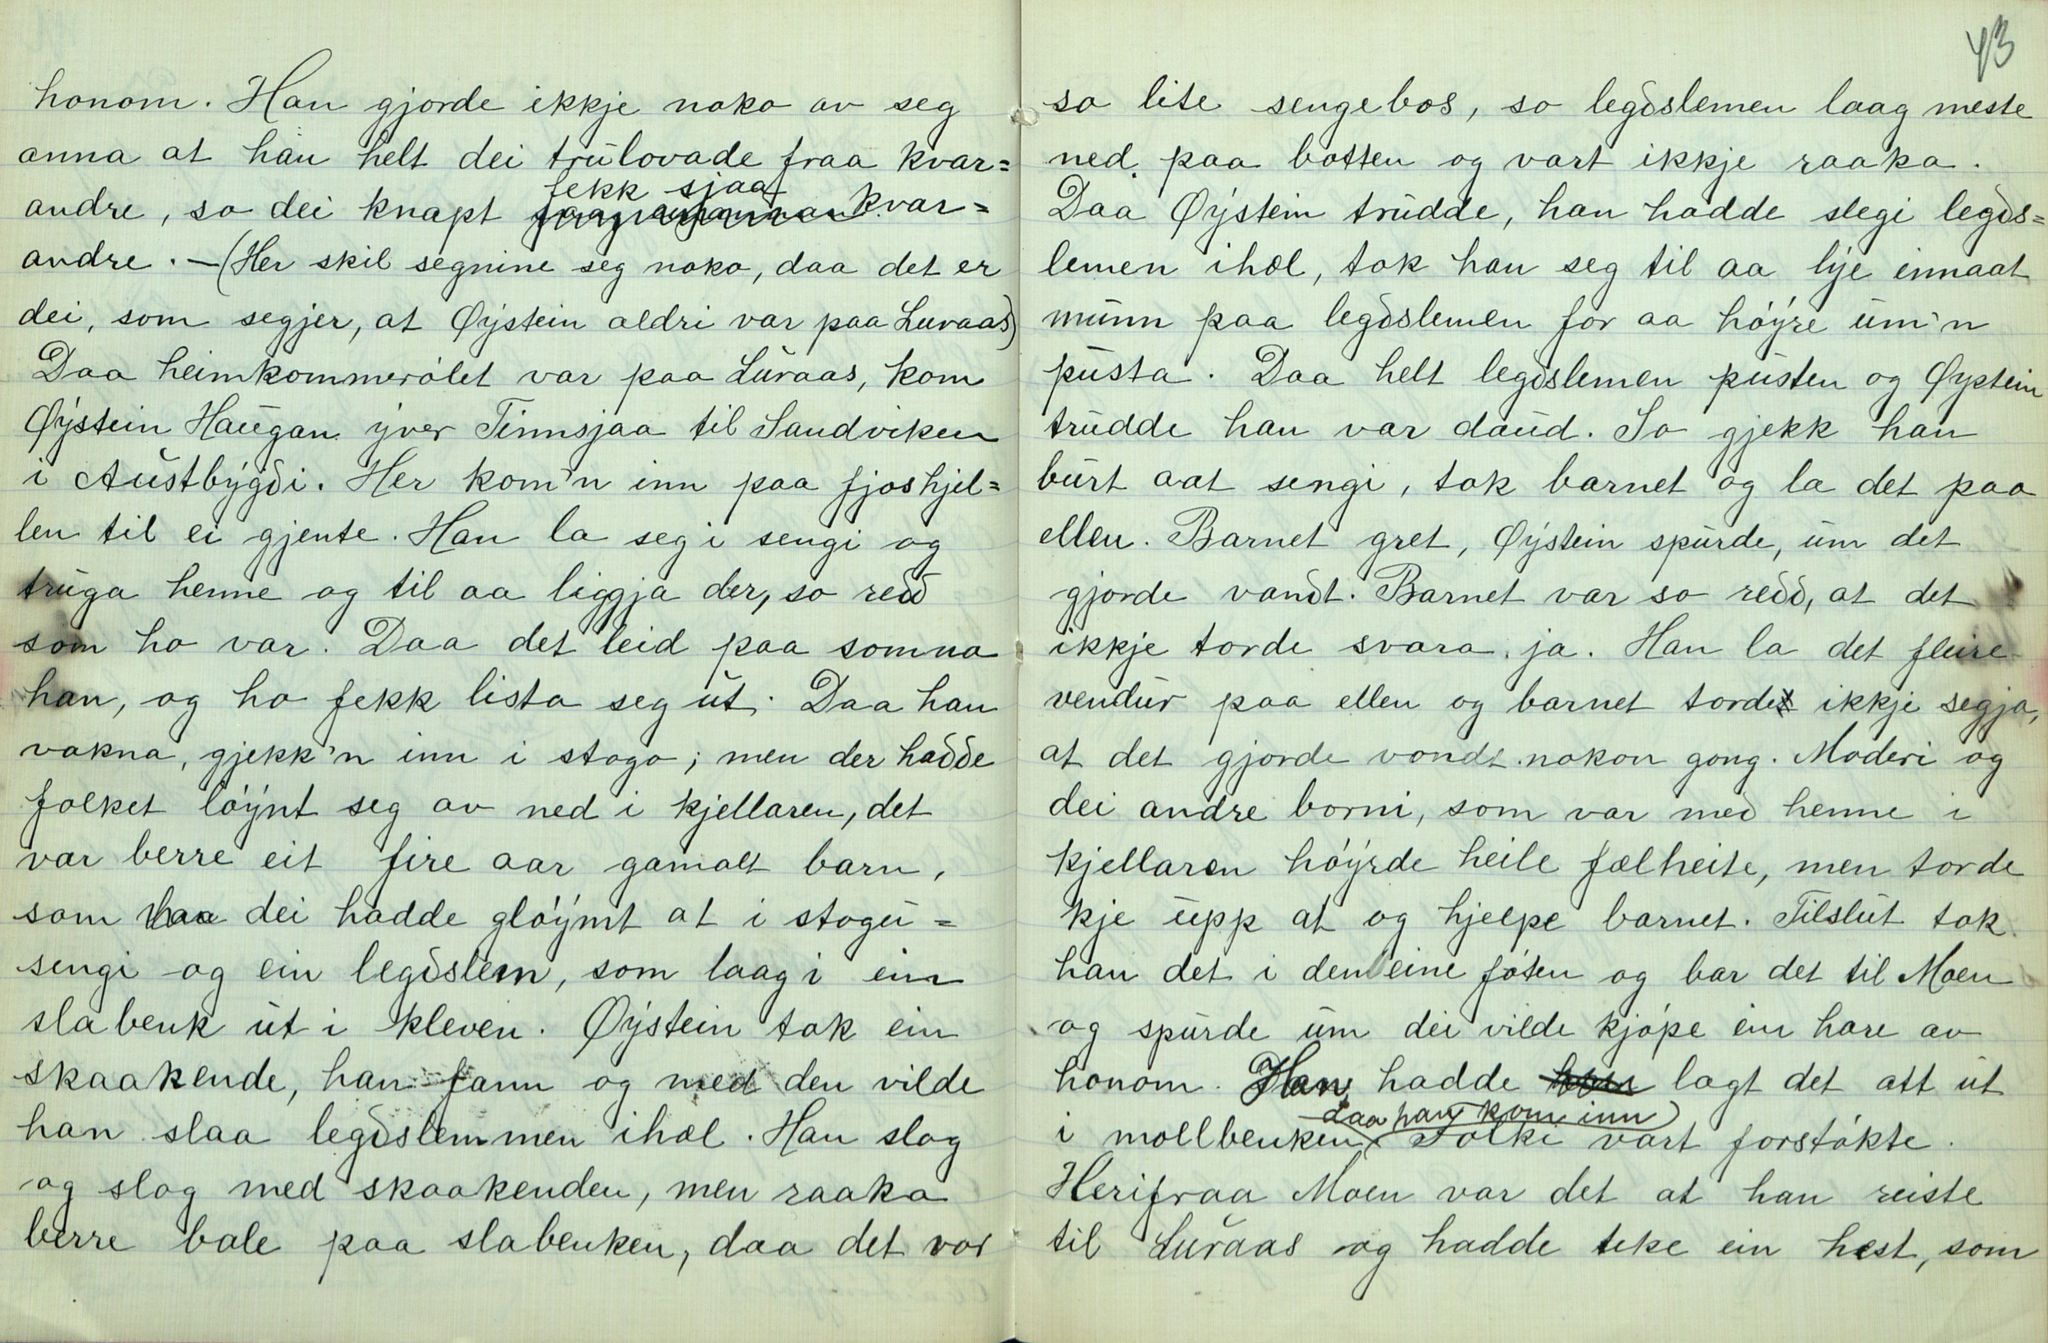 honom. Han gjorde ikkje noko av seg
anna at han helt dei trulovade fraa kvar=
fekk sjaa
andre, so dei knapt kvar=
andre. — (Her skil segnine seg noko, daa det er
dei, som segjer, at Øystein aldri var paa Luraas)
Daa heimkommerølet var paa Luraas, kom
Øystein Haugan yver Tinnsjaa til Sandviken
i Austbygdi. Her kom'n inn paa fjoshjel=
len til ei gjente. Han la seg i sengi og
truga henne og til aa liggja der, so redd
som ho var. Daa det leid paa somna
han, og ho fekk lista seg ut. Daa han
vakna, gjekk'n inn i stogo; men der hadde
folket løynt seg av ned i kjellaren, det
var berre eit fire aar gamalt barn,
som dei hadde gløymt at i stogu=
sengi og ein legdslem, som laag i ein
slabenk ut i kleven. Øystein tok ein
skaakende, han fann og med den vilde
han slaa legdslemmen ihæl. Han slog
og slog med skaakenden, men raaka
berre bale paa slabenken, daa det var
43
so lite sengebos, so legdslemen laag meste
ned paa botten og vart ikkje raaka.
Daa Øystein trudde, han hadde slegi legds=
lemen ihæl, tok han seg til aa lye innaat
munn paa legdslemen for aa høyre um'n
pusta. Daa helt legdslemen pusten og Øystein
trudde han var daud. So gjekk han
burt aat sengi, tok barnet og la det paa
ellen. Barnet gret, Øystein spurde, um det
gjorde vondt. Barnet var so redd, at det
ikkje torde svara ja. Han la det fleire
vendur paa ellen og barnet torde ikkje segja,
at det gjorde vondt nokon gong. Moderi og
dei andre borni, som var med henne i
kjellaren høyrde heile fælheite, men torde
kje upp at og hjelpe barnet. Tilslut tok
han det i den eine føten og bar det til Moen
og spurde um dei vilde kjøpe ein hare av
honom. Han hadde lagt det att ut
daa han kom inn
i mollbenken Folki vart forstøkte.
Herifraa Moen var det at han reiste
til Luraas og hadde teke ein hest, som